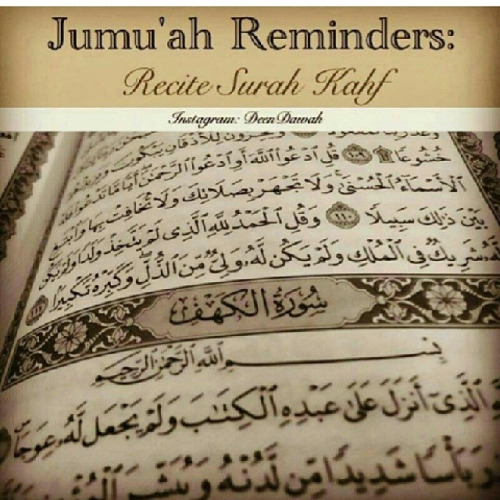 Jumu'ah Reminders:
Recite Surah Kahf
Instagram: DeenDawah
وَيَخِرُّونَ لِلْأَذْقَانِ يَبْكُونَ
خُشُوعًا ۩ ١٠٩ قُلِ ٱدْعُوا۟ ٱللَّهَ أَوِ ٱدْعُوا۟ ٱلرَّحْمَـٰنَ أَيًّا مَّا تَدْعُوا۟
ٱلْأَسْمَآءُ ٱلْحُسْنَىٰ وَلَا تَجْهَرْ بِصَلَاتِكَ وَلَا تُخَافِتْ بِهَا وَٱبْتَغِ
بَيْنَ ذَٰلِكَ سَبِيلًا ١١٠ وَقُلِ ٱلْحَمْدُ لِلَّهِ ٱلَّذِى لَمْ يَتَّخِذْ وَلَدًا وَلَمْ يَكُن
لَّهُۥ شَرِيكٌ فِى ٱلْمُلْكِ وَلَمْ يَكُن لَّهُۥ وَلِىٌّ مِّنَ ٱلذُّلِّ وَكَبِّرْهُ تَكْبِيرًۢا ١١١
سُورَةُ ٱلْكَهْفِ
بِسْمِ ٱللَّهِ ٱلرَّحْمَـٰنِ ٱلرَّحِيمِ
ٱلَّذِىٓ أَنزَلَ عَلَىٰ عَبْدِهِ ٱلْكِتَـٰبَ وَلَمْ يَجْعَل لَّهُۥ عِوَجَا
بَأْسًا شَدِيدًا مِّن لَّدُنْهُ وَيُبَشِّرَ